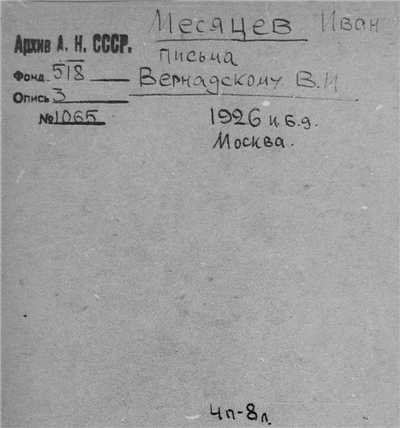 Месяцев Иван
Архив А. Н. СССР.
письма
Фонд 518
Вернадскому В.И
Опись 3
№1065
1926 и б.д.
Москва.
4п-8л.